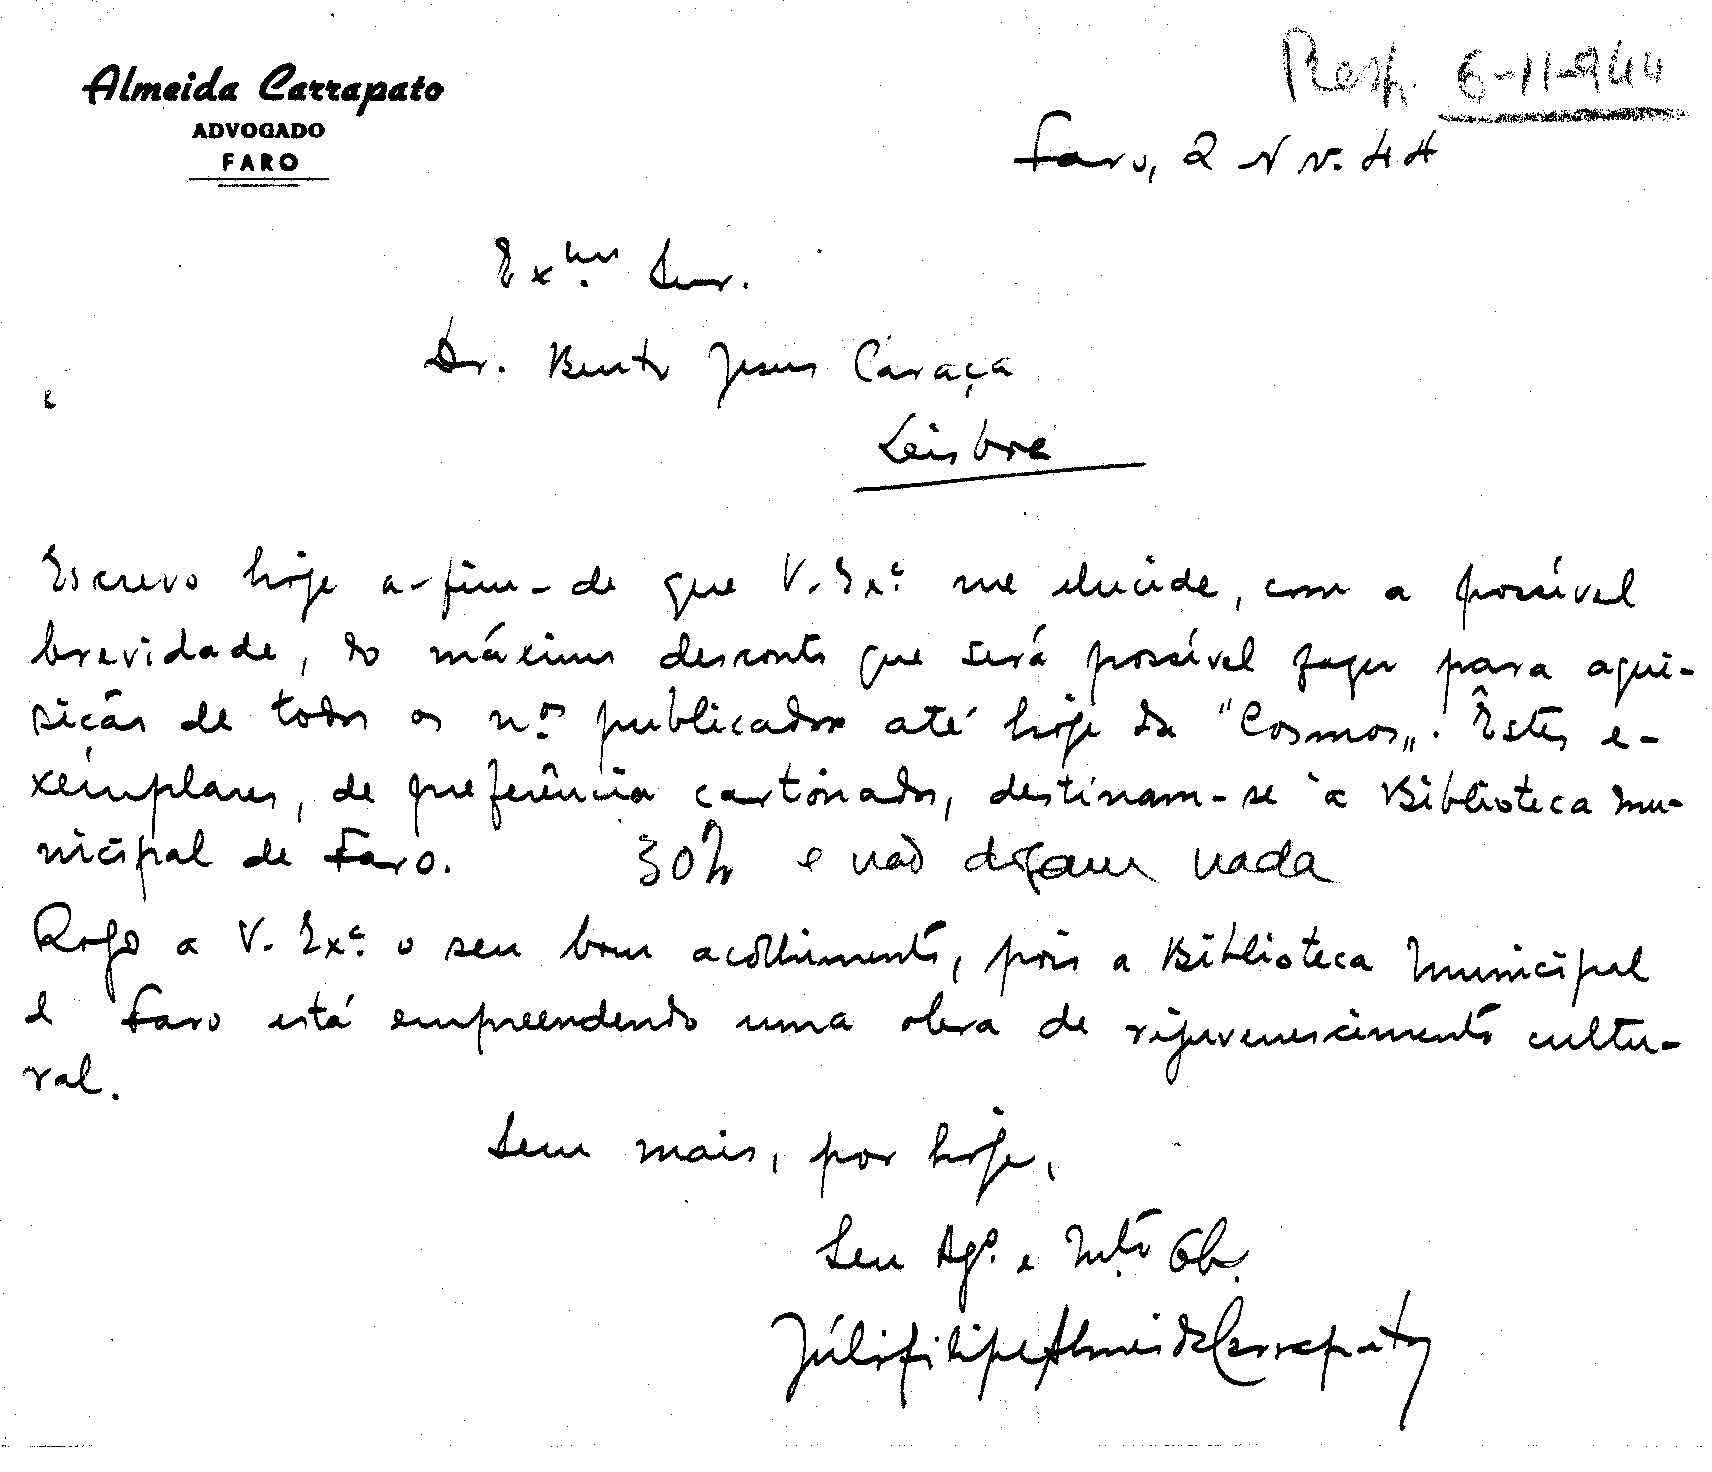 Almeida Carrapato
ADVOGADO
FARO
Resp. 6-11-944
Faro, 2 Nov. 44
Exmo. Snr.
Dr. Bento Jesus Caraça
Lisboa
Escrevo hoje a-fim-de que V. Exª. me elucide, com a possível
brevidade, do máximo desconto que será possível fazer para aqui-
sição de todos os n.os publicados até hoje da "Cosmos„. Êstes e-
xemplares, de preferência cartonados, destinam-se à Biblioteca Mu-
nicipal de Faro. 30% e não digam nada
Rogo a V. Exª. o seu bom acolhimento, pois a Biblioteca Municipal
de Faro está empreendendo uma obra de rejuvenescimento cultu-
ral.
Sem mais, por hoje,
Seu Agº. e Mtº Ob.
Júlio Filipe Almeida Carrapato